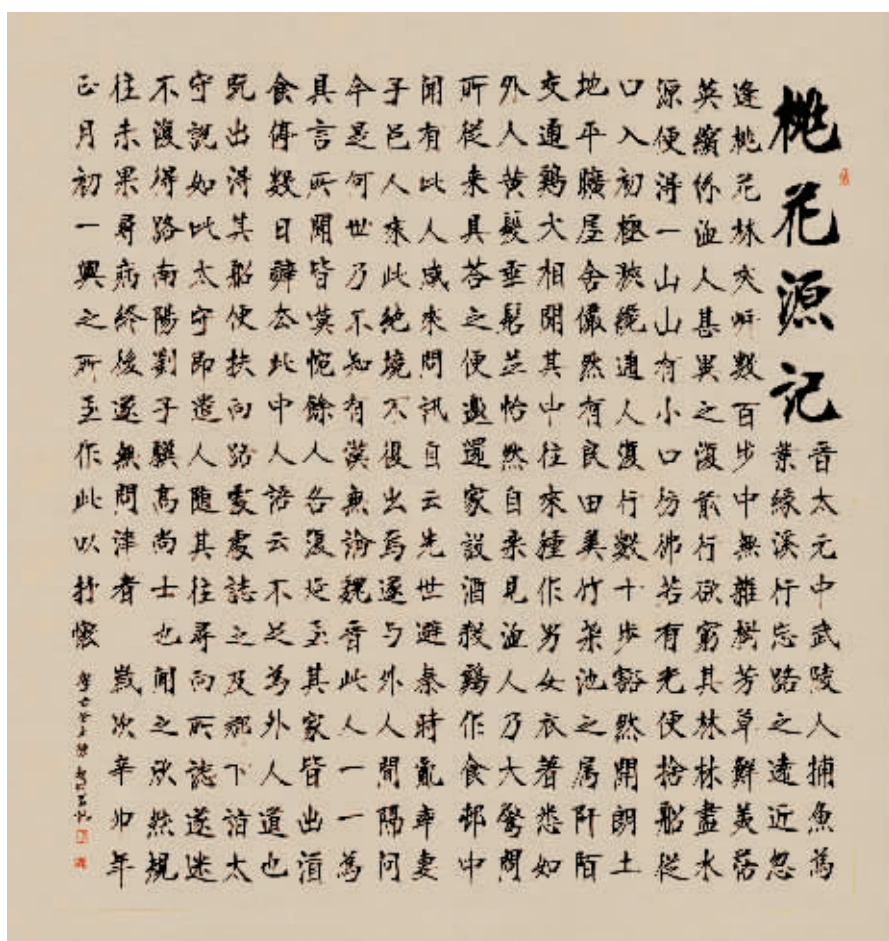 桃花源記
晉太元中武陵人捕魚為
業緣溪行忘路之遠近忽
逢桃花林夾岸數百步中無雜樹芳草鮮美落
英繽紛漁人甚異之復前行欲窮其林林盡水
源便得一山山有小口彷彿若有光便捨船從
口入初極狹纔通人復行數十步豁然開朗土
地平曠屋舍儼然有良田美竹桑池之属阡陌
交通鷄犬相聞其中往來種作男女衣着悉如
外人黄髮垂髫並怡然自樂見漁人乃大驚問
所從来具答之便邀還家設酒殺鷄作食邨中
聞有此人咸來問訊自云先世避秦時亂率妻
子邑人來此絶境不復出焉遂与外人間隔問
今是何世乃不知有漢無論魏晉此人一一為
具言所聞皆嘆惋餘人各復延至其家皆出酒
食停數日辭去此中人語云不足為外人道也
既出得其船便扶向路處處誌之及郡下詣太
守說如此太守即遣人隨其往尋向所誌遂迷
不復得路南陽劉子驥高尚士也聞之欣然規
往未果尋病終後遂無問津者 歲次辛卯年
正月初一興之所至作此以抒懷